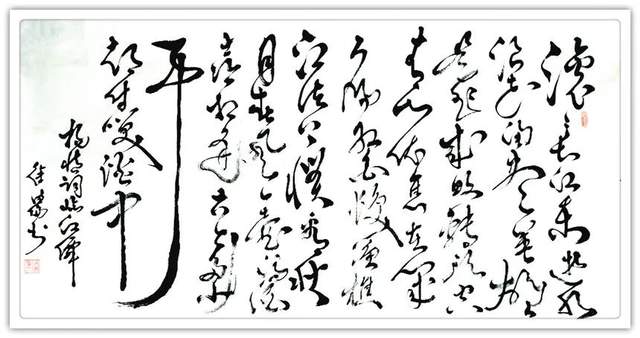 滚滚长江东逝水
浪花淘尽英雄
是非成败转头空
青山依旧在几
度夕阳红白发渔樵
江渚上惯看秋
月春风一壶浊酒
喜相逢古今多少
事
都付笑谈中
杨慎词临江仙
书